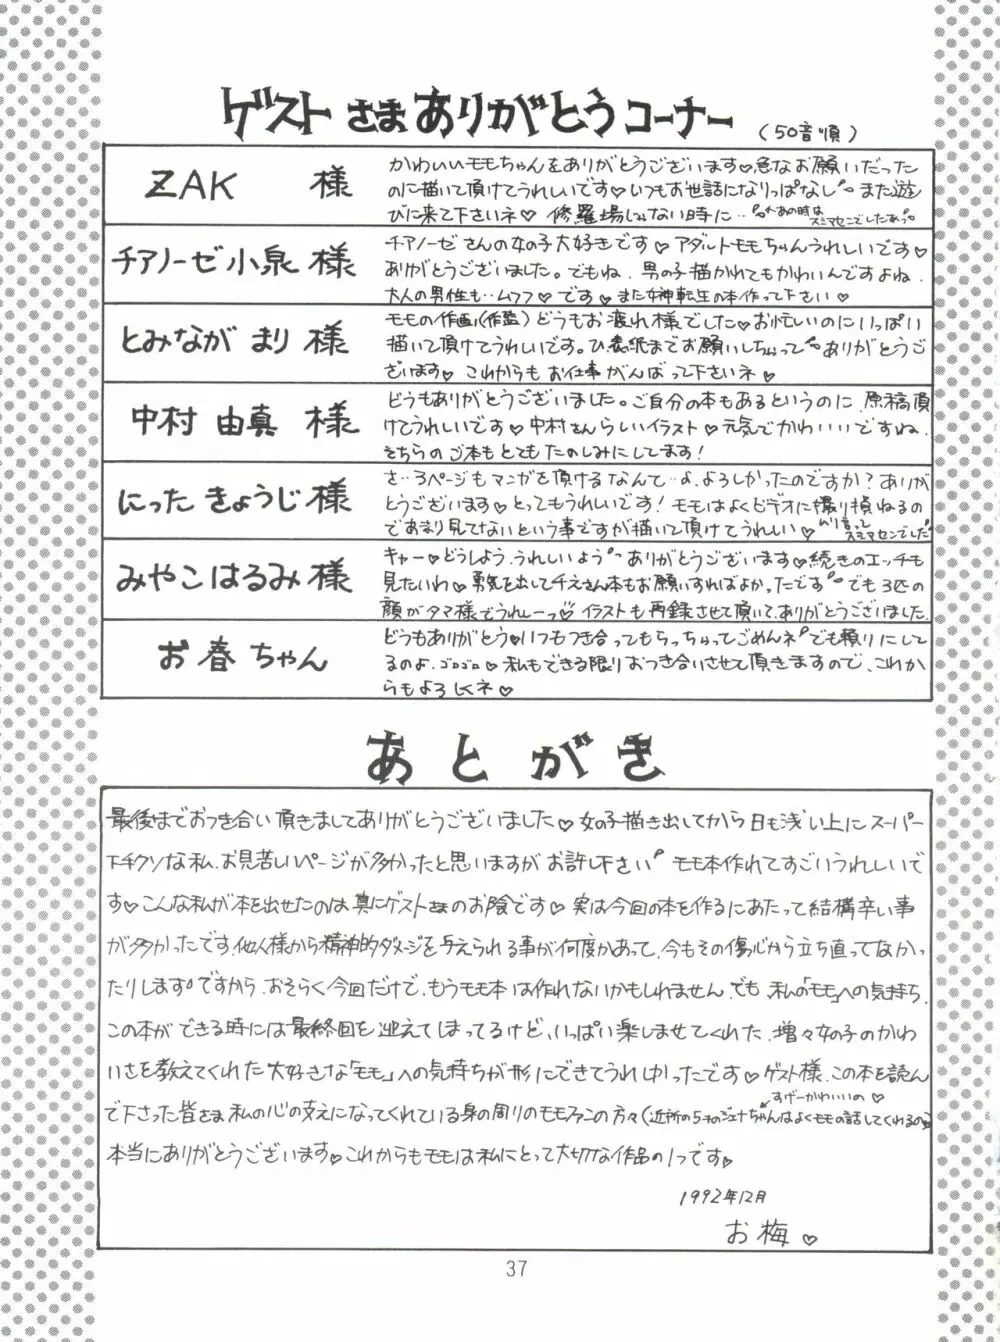 ゲストさまありがとうコーナー (50音順)
ZAK 様
かわいいモモちゃんをありがとうございます♡急なお願いだった
のに描いて頂けてうれしいです♡いつもお世話になりっぱなし また遊
びに来て下さいネ♡ 修羅場じゃない時に‥ あの時は
スミマセンでしたあっ
チアノーゼ小泉 様
チアノーゼさんの女の子大好きです♡アダルトモモちゃんうれしいです♡
ありがとうございました。でもね、男の子描かれてもかわいんですよね、
大人の男性も‥ムフフ♡です♡また女神転生の本作って下さい♡
とみなが まり 様
モモの作画(作監)どうもお疲れ様でした♡お忙しいのにいっぱい
描いて頂けてうれしいです。ひ表紙までお願いしちゃって ありがとうご
ざいます♡ これからも お仕事がんばって下さいネ♡
中村 由真 様
どうもありがとうございました。ご自分の本もあるというのに、原稿頂
けてうれしいです♡中村さんらしいイラスト♡元気でかわいいですね、
そちらのご本もとてもたのしみにしてます!
にった きょうじ 様
さ‥3ページもマンガを頂けるなんて‥よ、よろしかったのですか?ありが
とうございます♡とってもうれしいです! モモはよくビデオに撮り損ねるの
であまり見てないという事ですが描いて頂けてうれしい♡ ムリ言って
スミマセンでした
みやこはるみ 様
キャー♡どうしよう、うれしいよう ありがとうございます♡続きのエッチも
見たいわ♡勇気を出してチエさん本もお願いすればよかったです でも3匹の
顔がタマ様でうれしーっ♡イラストも再録させて頂いて、ありがとうございました。
お春ちゃん
どうもありがとう♡いつもつき合ってもらっちゃってごめんネ でも頼りにして
るのよ、ゴロゴロ♡私もできる限りおつき合いさせて頂きますので、これか
らもよろしくネ♡
あとがき
最後までおつき合い頂きましてありがとうございました♡女の子描き出してから日も浅い上にスーパー
下手クソな私、お見苦しいページが多かったと思いますがお許し下さい モモ本作れてすごいうれしいで
す♡こんな私が本を出せたのは真にゲストさまのお陰です♡実は今回の本を作るにあたって結構辛い事
が多かったです。他人様から精神的ダメージを与えられる事が何度かあって、今もその傷心から立ち直ってなかっ
たりします ですから、おそらく今回だけで、もうモモ本は作れないかもしれません。でも、私の「モモ」への気持ち、
この本ができる時には最終回を迎えてしまってるけど、いっぱい楽しませてくれた、増々女の子のかわ
いさを教えてくれた大好きな「モモ」への気持ちが形にできてうれしかったです♡ゲスト様、この本を読ん
すげーかわいいの♡
で下さった皆さま、私の心の支えになってくれている身の周りのモモファンの方々(近所の5才のジュナちゃんはよくモモの話してくれるの♡)
本当にありがとうございます♡これからもモモは私にとって大切な作品の1つです♡
1992年12月
お梅♡
37